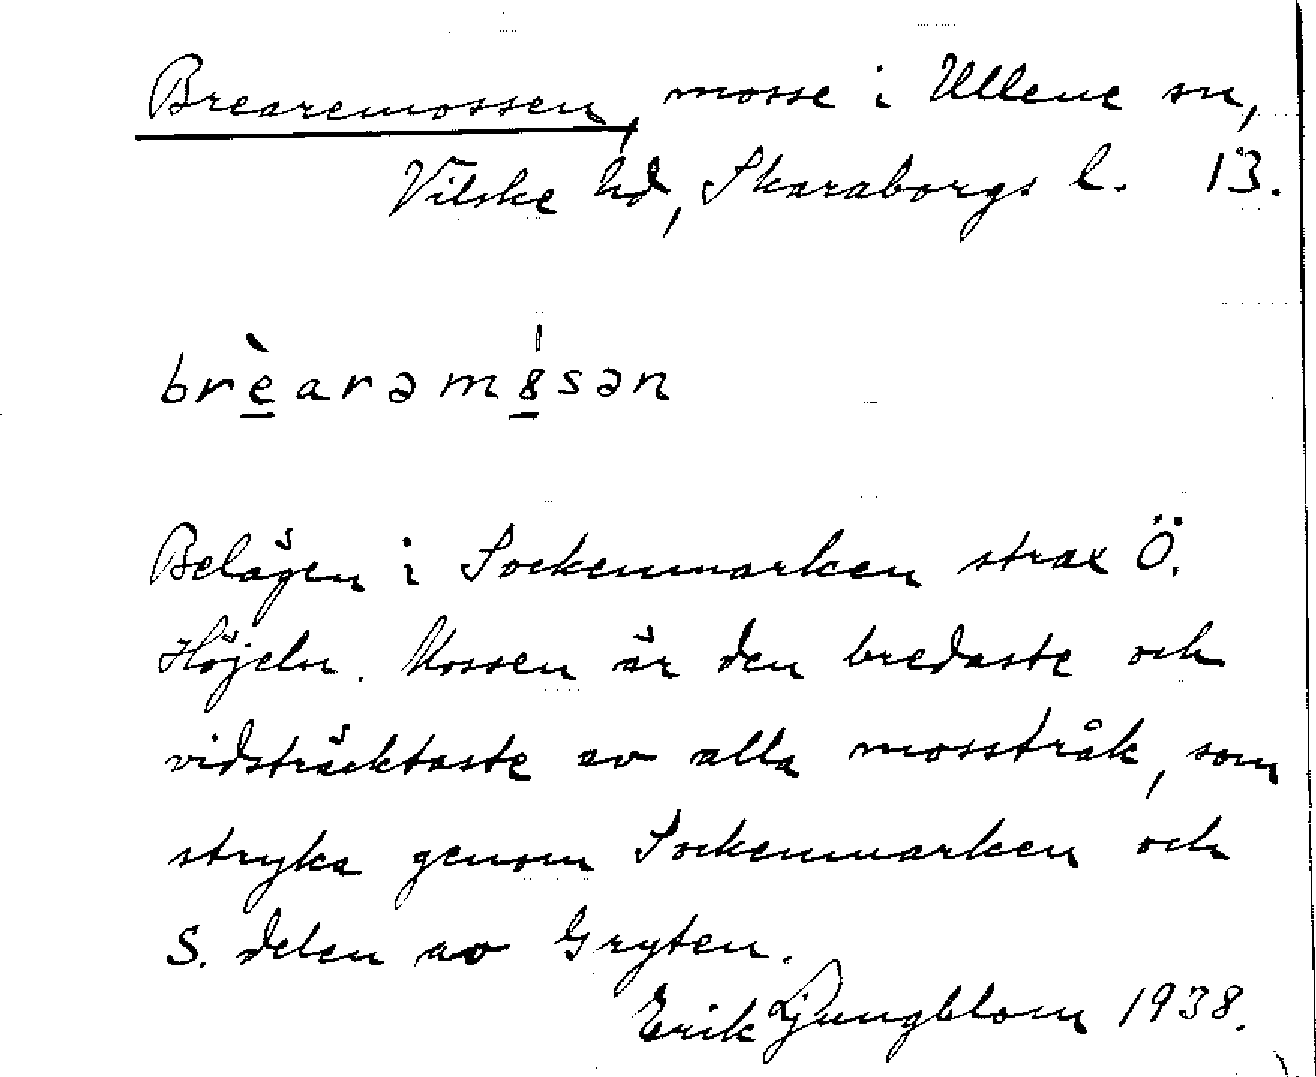 Brearemossen, mosse i Ullene sn,
Vilske hd, Skaraborgs l. 13.
brèarəm8sən
Belägen i Sockenmarken strax Ö.
Höjelsn. Mossen är den bredaste och
vidsträcktaste av alla mosstråk, som
stryka genom Sockenmarken och
S. delen av Gryten.
Erik Ljungblom 1938.